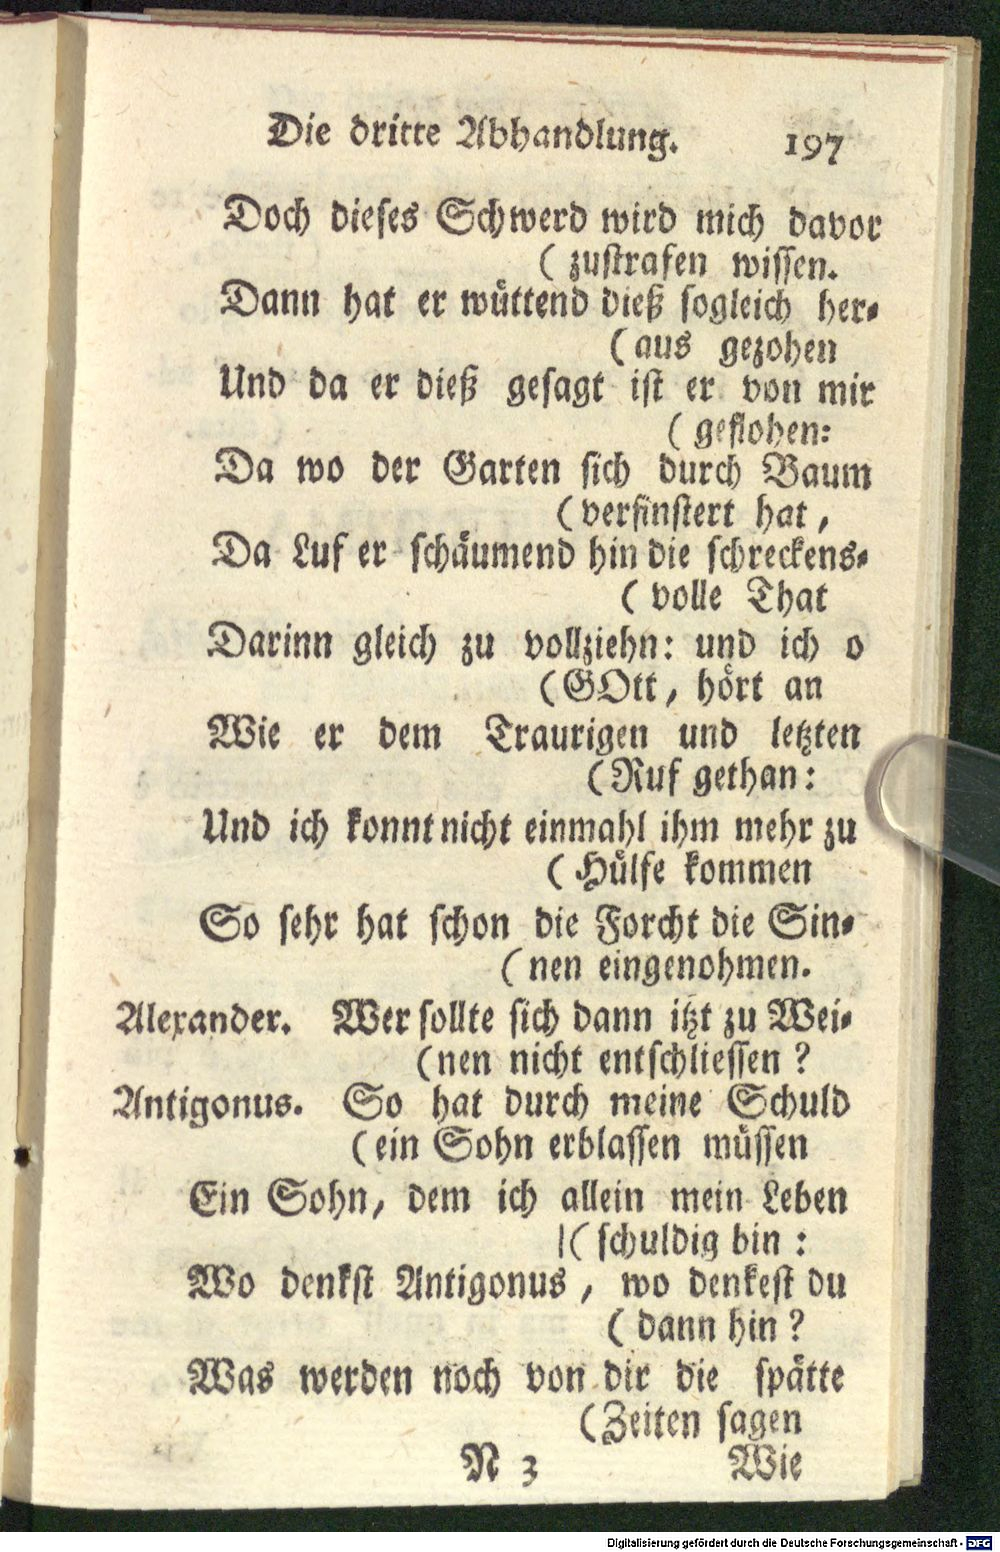 Die dritte Abhandlung. 197
Doch dieses Schwerd wird mich davor
( zustrafen wissen.
Dann hat er wüttend dieß sogleich her-
( aus gezohen
Und da er dieß gesagt ist er von mir
( geflohen:
Da wo der Garten sich durch Baum
( verfinstert hat ,
Da Luf er schäumend hin die schreckens-
( volle That
Darinn gleich zu vollziehn: und ich o
(GOtt, hört an
Wie er dem Traurigen und letzten
(Ruf gethan:
Und ich konnt nicht einmahl ihm mehr zu
( Hülfe kommen
So sehr hat schon die Forcht die Sin-
( nen eingenohmen.
Alexander. Wer sollte sich dann itzt zu Wei-
(nen nicht entschliessen ?
Antigonus. So hat durch meine Schuld
(ein Sohn erblassen müssen
Ein Sohn, dem ich allein mein Leben
|( schuldig bin :
Wo denkst Antigonus , wo denkest du
( dann hin ?
Was werden noch von dir die spätte
(Zeiten sagen
N 3 Wie
Digitalisierung gefördert durch die Deutsche Forschungsgemeinschaft - DFG